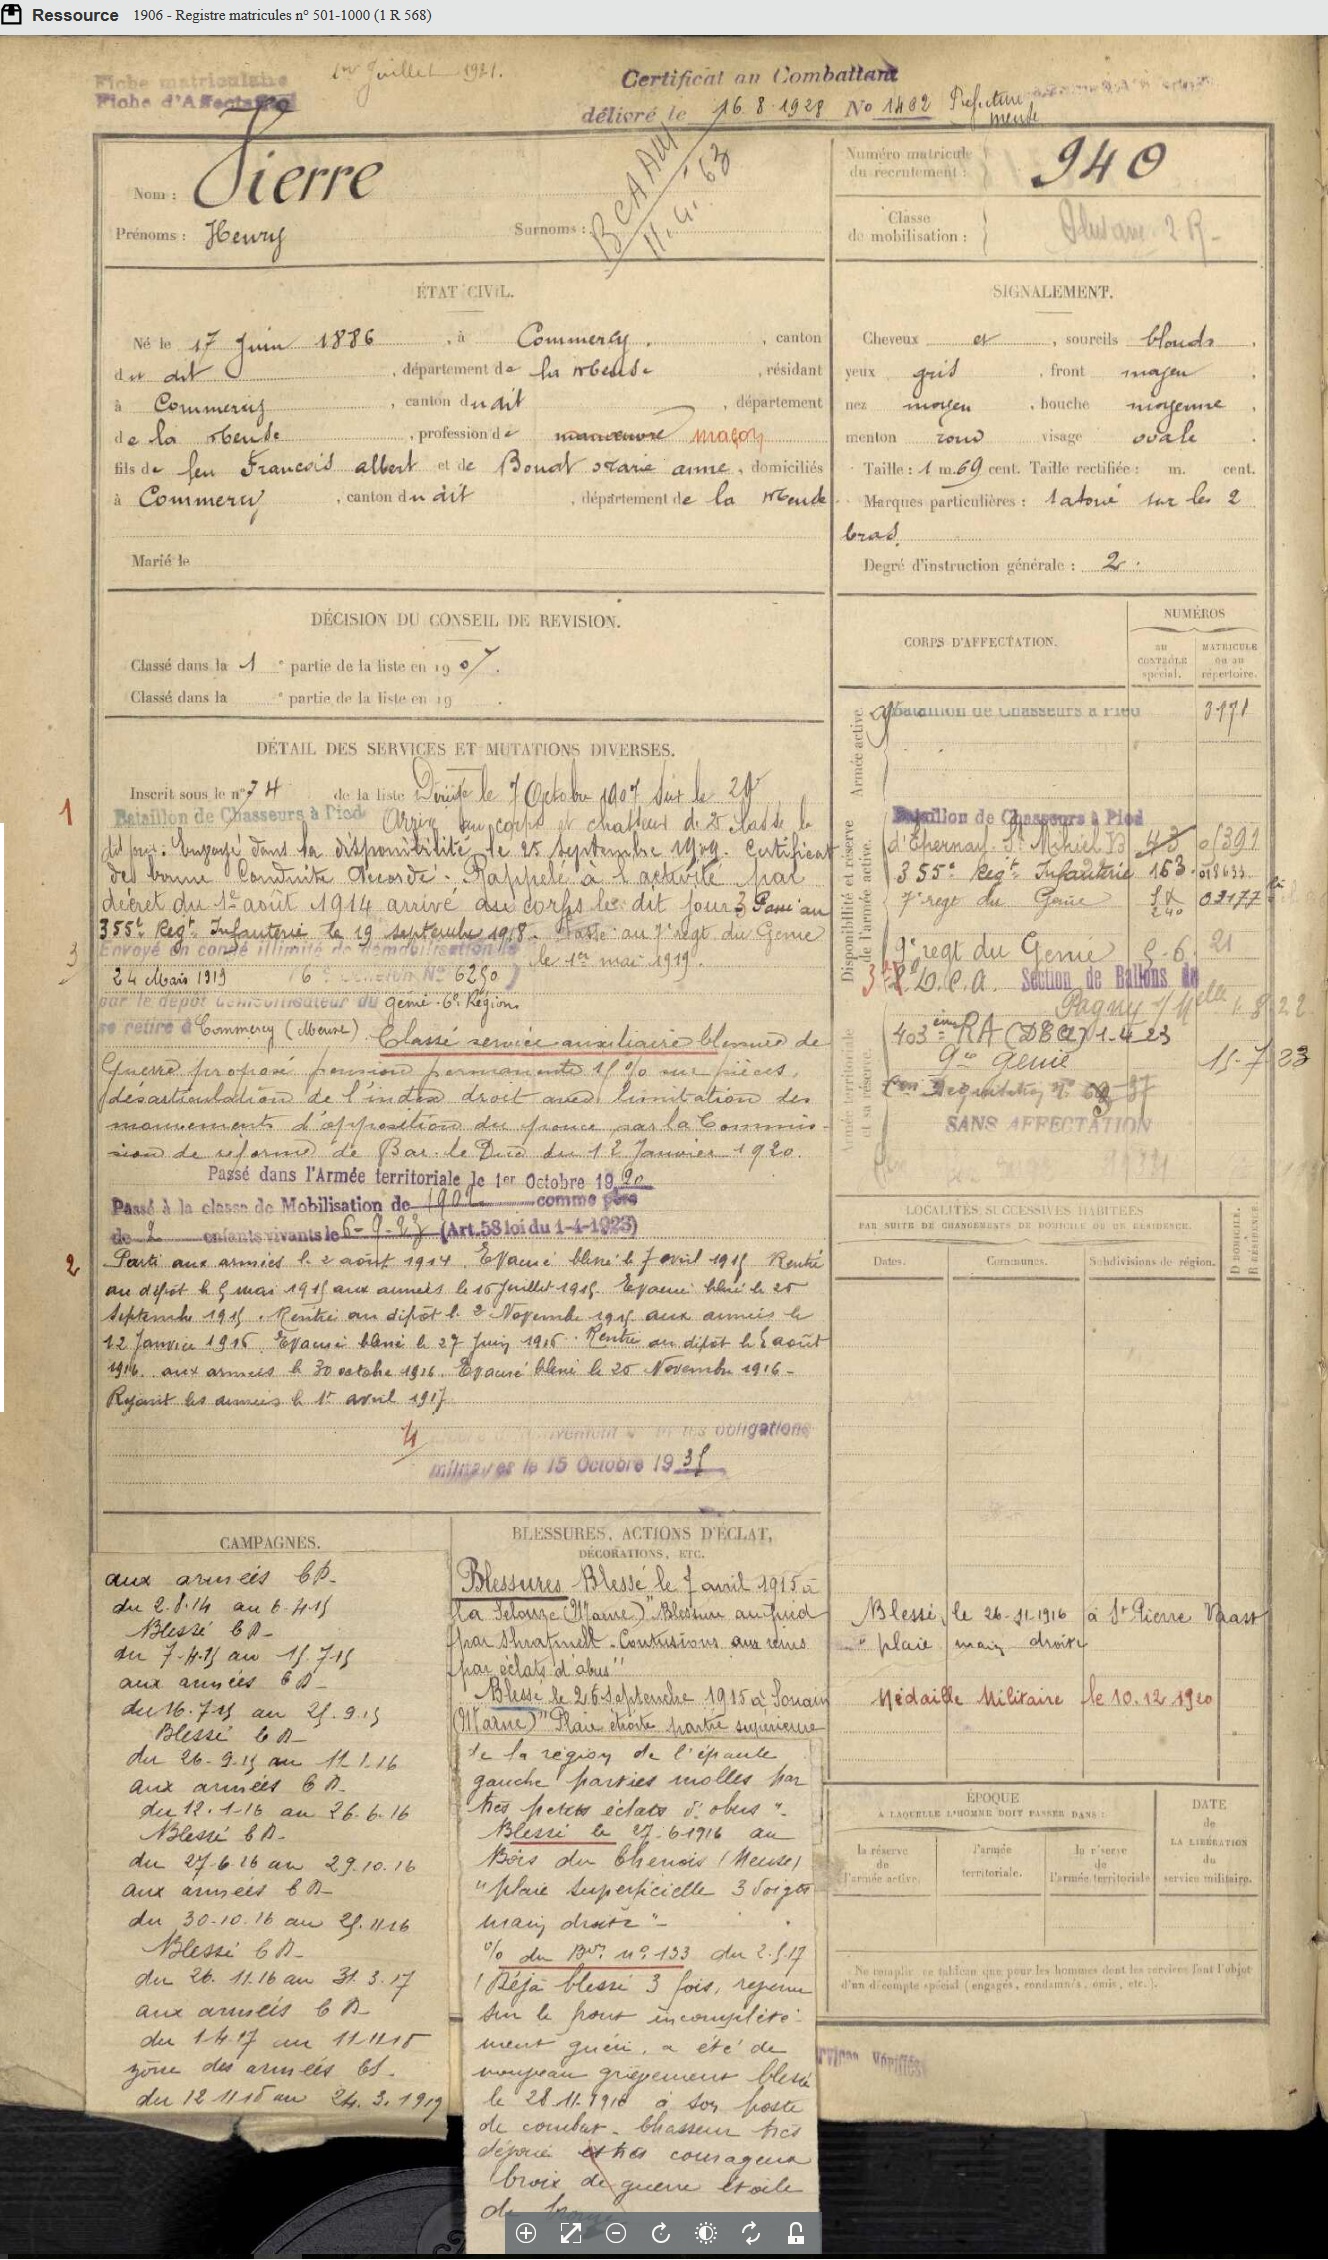 Ressource 1906 - Registre matricules n° 501-1000 (1 R 568)
Fiche matriculaire
Fiche d'Affectation
1er Juillet 1921.
Certificat au Combattant
délivré le 16.8.1928 No 1402 Préfecture
meuse
Nom : Pierre
Prénoms : Henry
Surnoms :
BCAAM
11.4.63
Numéro matricule
du recrutement : 940
Classe
de mobilisation :
ÉTAT CIVIL.
Né le 17 Juin 1886, à Commercy, canton
du dit, département de la Meuse, résidant
à Commercy, canton dudit, département
de la Meuse, profession de manoeuvre maçon
fils de feu François albert et de Bouat Marie anne, domiciliés
à Commercy, canton dudit, département de la Meuse
Marié le
SIGNALEMENT.
Cheveux et, sourcils blonds.
yeux gris, front moyen.
nez moyen, bouche moyenne,
menton rond visage ovale.
Taille : 1 m. 69 cent. Taille rectifiée : m. cent.
Marques particulières : tatoué sur les 2
bras.
Degré d'instruction générale : 2.
DÉCISION DU CONSEIL DE REVISION.
Classé dans la 1e partie de la liste en 1907.
Classé dans la e partie de la liste en 19 .
DÉTAIL DES SERVICES ET MUTATIONS DIVERSES.
Inscrit sous le n° 74 de la liste Dirigé le 7 Octobre 1907 sur le 29e
1
Bataillon de Chasseurs à Pied Arrivé au corps et chasseur de 2e classe le
dit jour. Envoyé dans la disponibilité le 25 septembre 1909. Certificat
de bonne Conduite Accordé. Rappelé à l'activité par
décret du 1er août 1914 arrivé au corps le dit jour 3 Passé au
355e Regt Infanterie le 19 septembre 1918. Passé au 7e regt du Genie
3
Envoyé en congé illimité de démobilisation le le 1er mai 1919.
24 Mars 1919 6e échelon No 6250
par le dépôt démobilisateur du génie 6e Région
se retire à Commercy (Meuse) Classé service auxiliaire blessure de
Guerre proposé pension permanente 15% sur pièces,
désarticulation de l'index droit avec limitation des
mouvements d'opposition du pouce par la Commis-
sion de réforme de Bar-le-Duc du 12 Janvier 1920.
Passé dans l'Armée territoriale le 1er Octobre 1920
Passé à la classe de Mobilisation de 1902 comme père
de 2 enfants vivants le 6-9-27 (Art.58 loi du 1-4-1923)
2
Parti aux armées le 2 août 1914. Evacué blessé le 7 avril 1915 Rentré
au dépôt le 5 mai 1915 aux armées le 16 Juillet 1915. Evacué blessé le 26
septembre 1915. Rentré au dépôt le 2 Novembre 1915 aux armées le
12 Janvier 1916. Evacué blessé le 27 Juin 1916. Rentré au dépôt le 5 août
1916 aux armées le 30 octobre 1916. Evacué blessé le 26 Novembre 1916-
Rejoint les armées le 1er avril 1917
4
obligations
militaires le 15 Octobre 1935
CORPS D'AFFECTATION.
NUMÉROS
au
CONTRÔLE
spécial.
MATRICULE
ou au
répertoire.
Armée active.
Bataillon de Chasseurs à Pied 3171
Disponibilité et réserve
de l'armée active.
Bataillon de Chasseurs à Pied
d'Epernay St Mihiel B 43 01391
355e Regt Infanterie 163. 018633
7e regt du Genie 240 02177
9e regt du Genie 5-6. 21
D.C.A. Section de Ballons de
Pagny s/Melle 1.8.22
403ème RA (DCA) 1-4-23
9e Genie 15-7-23
Armée territoriale
et sa réserve.
SANS AFFECTATION
LOCALITÉS SUCCESSIVES HABITÉES
PAR SUITE DE CHANGEMENTS DE DOMICILE OU DE RÉSIDENCE.
Dates. Communes. Subdivisions de région. D DOMICILE. R RÉSIDENCE.
Blessé le 26-11-1916 à St Pierre Vaast
" plaie main droite
Médaille Militaire le 10.12.1920
CAMPAGNES.
aux armées CD-
du 2.8.14 au 6.4.15
Blessé CD-
du 7-4-15 au 15.7.15
aux armées CD-
du 16.7.15 au 25.9.15
Blessé CD-
du 26-9.15 au 11.1.16
aux armées CD-
du 12.1.16 au 26.6.16
Blessé CD-
du 27.6.16 au 29.10.16
aux armées CD-
du 30.10.16 au 25.11.16
Blessé CD-
du 26.11.16 au 31.3.17
aux armées CD-
du 1.4.17 au 11.11.18
zône des armées CS-
du 12.11.18 au 24.3.1919
BLESSURES, ACTIONS D'ÉCLAT,
DÉCORATIONS, ETC.
Blessures Blessé le 7 avril 1915 à
la Selouze (Marne) "Blessure au pied
par shrapnell - Contusions aux reins
par éclats d'obus"
Blessé le 26 septembre 1915 à Souain
(Marne) "Plaie étroite partie supérieure
de la région de l'épaule
gauche parties molles par
très petits éclats d'obus".
Blessé le 27.6.1916 au
Bois du Chenois (Meuse)
"plaie superficielle 3 doigts
main droite"-
% du Bon n° 133 du 2.5.17
Déjà blessé 3 fois, revenu
sur le front incomplète-
ment guéri, a été de
nouveau grièvement blessé
le 28.11.1916 à son poste
de combat. Chasseur très
dévoué et très courageux
Croix de guerre étoile
de bronze
ÉPOQUE
À LAQUELLE L'HOMME DOIT PASSER DANS :
la réserve
de
l'armée active.
l'armée
territoriale.
la réserve
de
l'armée territoriale
DATE
de
LA LIBÉRATION
du
service militaire.
Ne remplir ce tableau que pour les hommes dont les services font l'objet
d'un décompte spécial (engagés, condamnés, omis, etc.).
Services Vérifiés